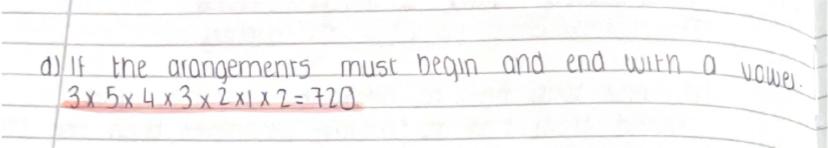 a) If the arangements must begin and end with a vowel.
3 x 5 x 4 x 3 x 2 x1 x 2 = 720